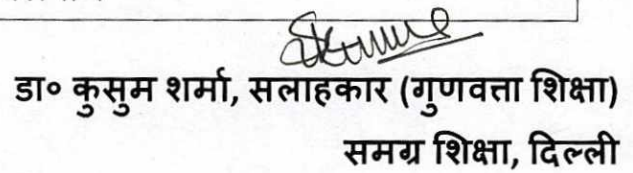 डा० कुसुम शर्मा, सलाहकार (गुणवत्ता शिक्षा)
समग्र शिक्षा, दिल्ली